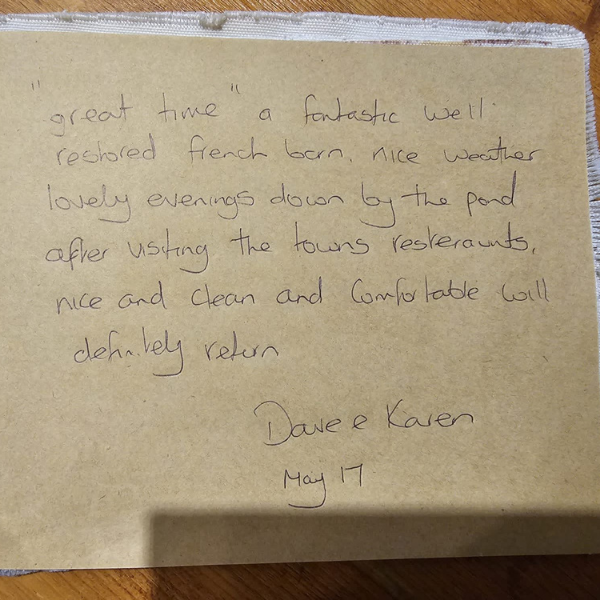 "great time" a fantastic well
restored french barn. nice weather
lovely evenings down by the pond
after visting the towns resteraunts,
nice and clean and comfortable will
definitely return
Dave e Karen
May 17